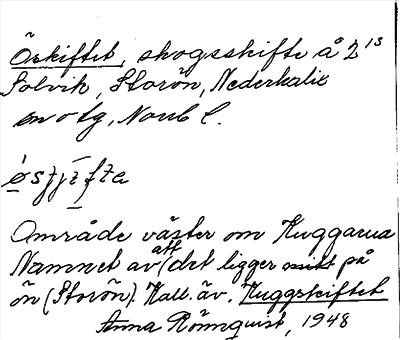 Öskiftet, skogsskifte å 2¹³
Solvik, Storön, Nederkalix
sn o tg, Norrb l.
Område väster om Huggarna
Namnet av att det ligger på
ön (Storön). Kall. äv. Huggskiftet
Anna Rönnquist, 1948